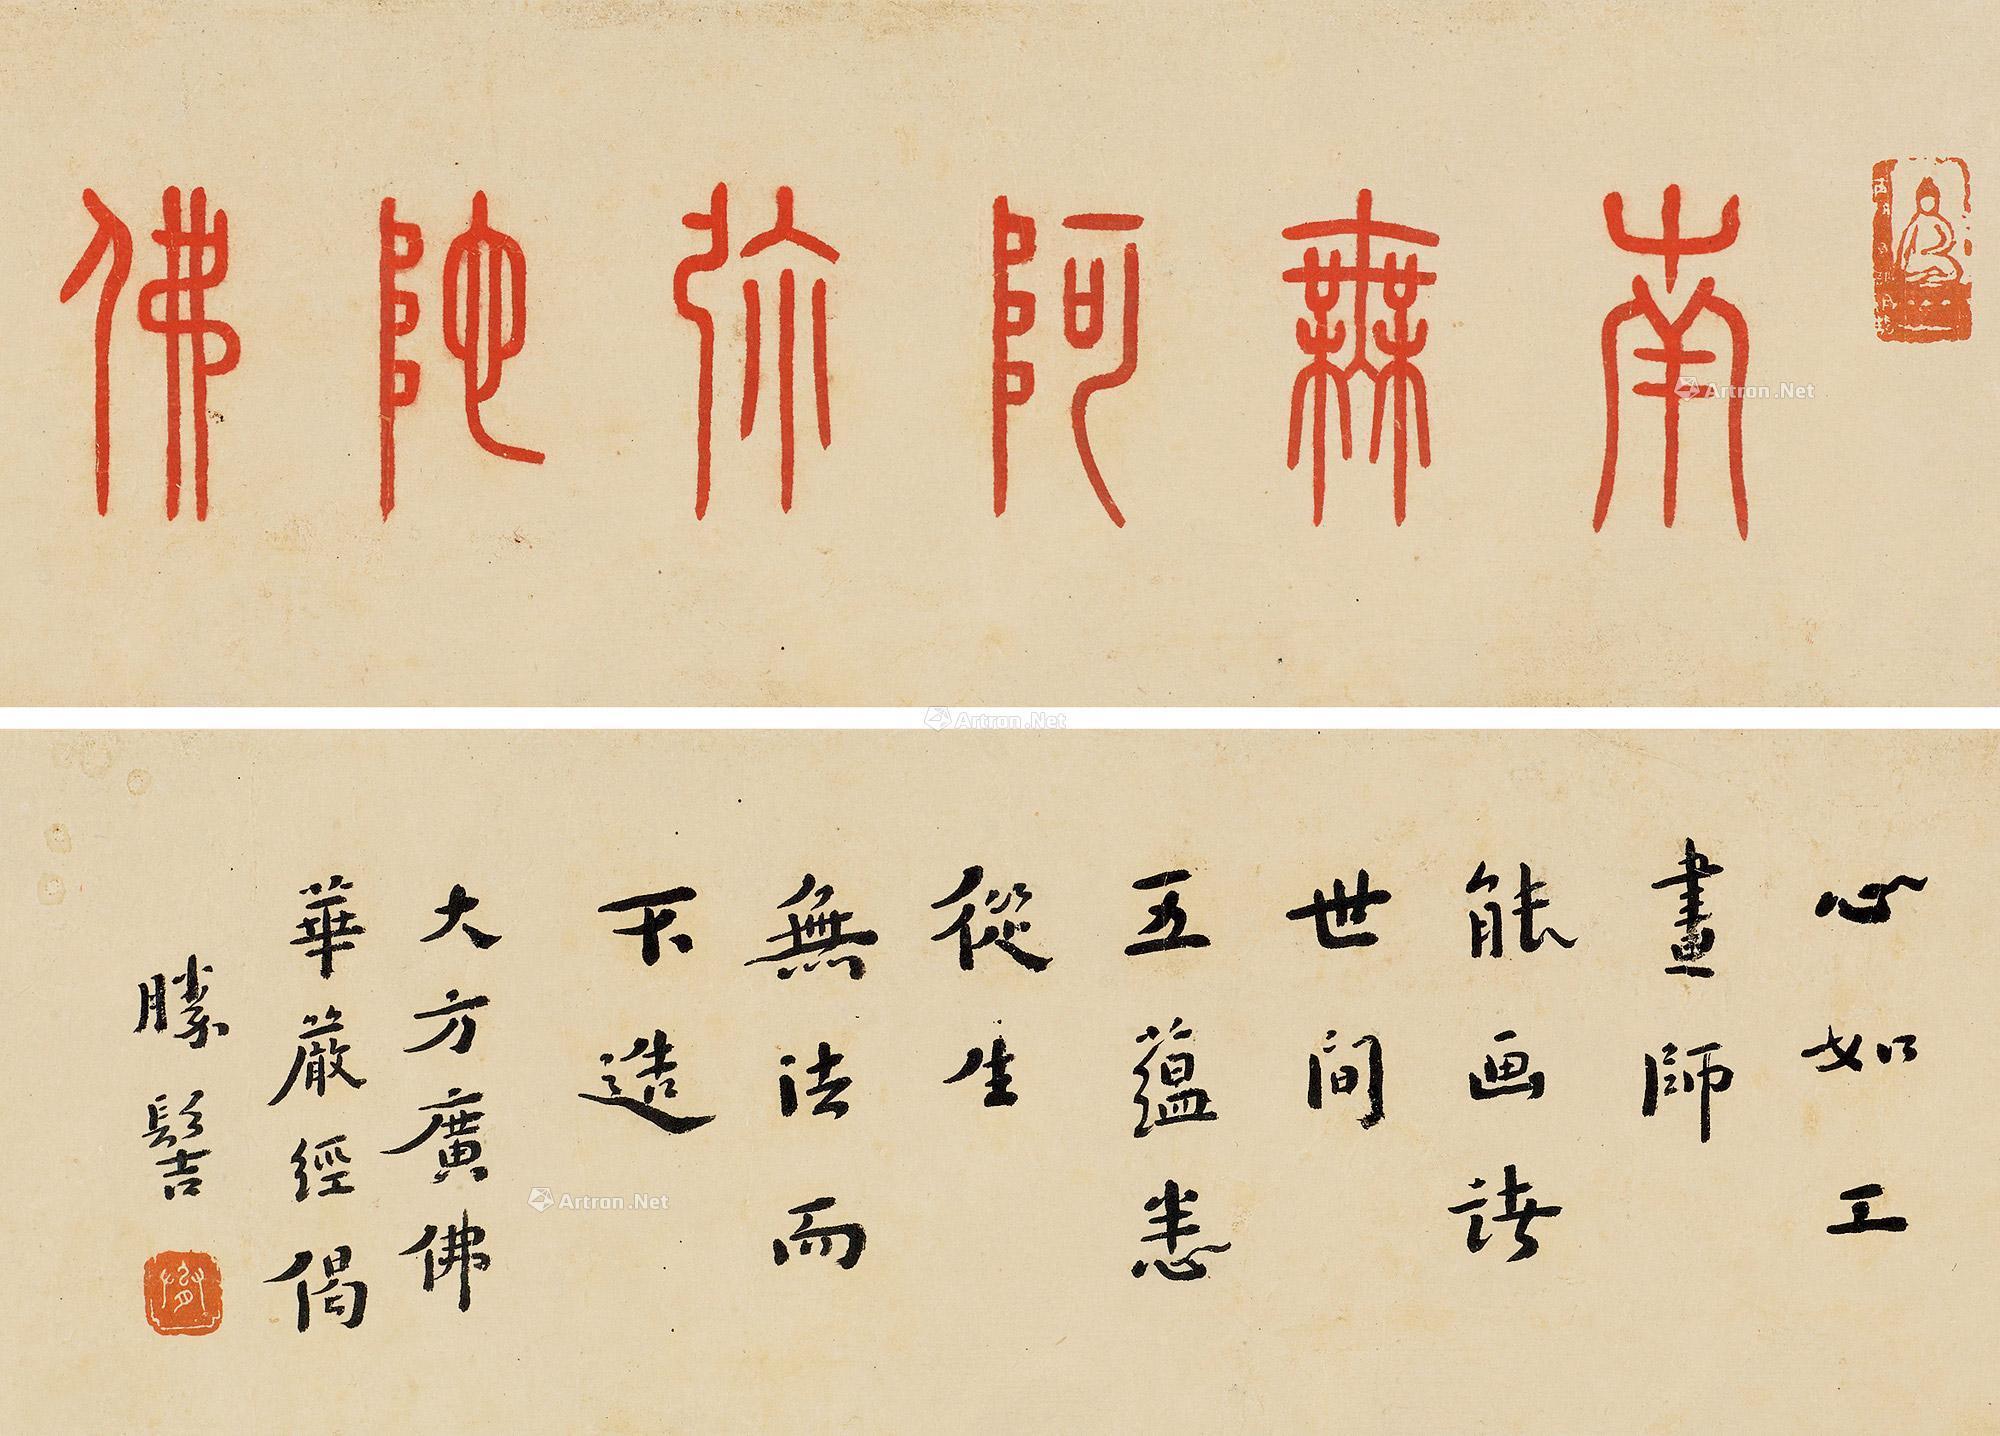 南無阿弥陀佛
心如工
畫師
能画諸
世間
五蘊悉
從生
無法而
不造
大方廣佛
華嚴經偈
勝髻
Artron.Net
Artron.Net
Artron.Net